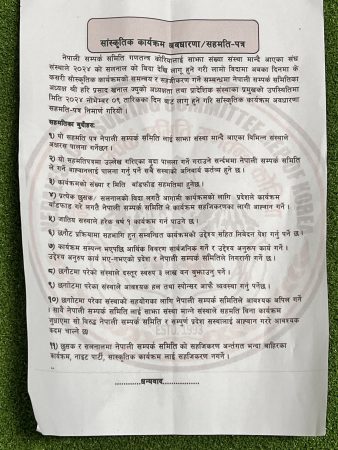 सांस्कृतिक कार्यक्रम अवधारणा/सहमति-पत्र
नेपाली सम्पर्क समिति गणतन्त्र कोरियालाई साझा संख्या संस्था मान्दै आएका संघ
संस्थाले २०२४ को सलनाल को बिदा देखि लागू हुने गरी लामो बिदामा अबका दिनमा के
कसरी साँस्कृतिक कार्यक्रमको समन्वय र सहजीकरण गर्ने सम्बन्धमा नेपाली सम्पर्क समितिका
अध्यक्ष श्री हरि प्रसाद खनाल ज्यूको अध्यक्षता तथा प्रादेशिक संस्थाका प्रमुखको उपस्थितिमा
मिति 2024 नोभेम्बर ०९ तारिकका दिन बाट लागू हुने गरि सांस्कृतिक कार्यक्रम अवधारणा
सहमति-पत्र निमार्ण गरियो ।
सहमतिका बुँदाहरु:
१) यो सहमति पत्र नेपाली सम्पर्क समिति लाई साझा संस्था मान्दै आएका विभिन्न संस्थाले
अक्षरस पालना गर्नेछन ।
२) यो सहमतिपत्रमा उल्लेख गरिएका बुदा पालना गर्ने गराउने सन्दर्भमा नेपाली सम्पर्क समिति
ले गर्ने आव्हानलाई पालना गर्नु पर्ने सबै संस्थाको अनिवार्य कर्तव्य हुने छ ।
३) कार्यक्रमको संख्या र मिति बाँडफाँड सहमतिमा हुनेछ ।
४) प्रत्येक छुसक/ सलनालको बिदा लगत्तै आगामी कार्यक्रमको लागि प्रदेशले कार्यक्रम
बाँडफाड गरे लगत्तै नेपाली सम्पर्क समिति ले कार्यक्रम सहजिकरणका लागी आव्हान गर्ने ।
५) जातिय संस्थाले हरेक बर्ष १ कार्यक्रम गर्न पाउने छ ।
६) छनौट प्रक्रियामा सहभागि हुन सम्बन्धित कार्यक्रमको उद्देश्य सहित निवेदन पेश गर्नु पर्ने छ ।
७) कार्यक्रम सम्पन्न भएपछि आर्थिक विवरण सार्वजनिक गर्ने र उद्देश्य अनुरूप कार्य गर्ने ।
उद्देश्य अनुरूप कार्य भए-नभएको प्रदेशले र नेपाली सम्पर्क समितिले निगरानी गर्ने छ ।
८) छनौटमा परेको संस्थाले दस्तुर स्वरुप ३ लाख वन बुझाउनु पर्ने ।
९) छनौटमा परेका संस्थाले आवश्यक हल तथा स्पोन्सर आफै व्यवस्था गर्नु पर्नेछ ।
१०) छनौटमा परेका संस्थाको सहयोगका लागि नेपाली सम्पर्क समितिले आवश्यक अपिल गर्ने
। साथै नेपाली सम्पर्क समिति लाई साझा संस्था मान्ने संस्थाले सहमति बिना कार्यक्रम
गरेमा सो विरुद्ध नेपाली सम्पर्क समिति र सम्पूर्ण प्रदेश संस्थालाई आव्हान गररे आवश्यक
कदम चाल्ने छ।
११) छुसक र सलनालमा नेपाली सम्पर्क समिति को सहजिकरण अन्तर्गत भन्दा बाहिरका
कार्यक्रम, नाइट पार्टी, सांस्कृतिक कार्यक्रम लाई सहजिकरण नगर्ने ।
............धन्यवाद............